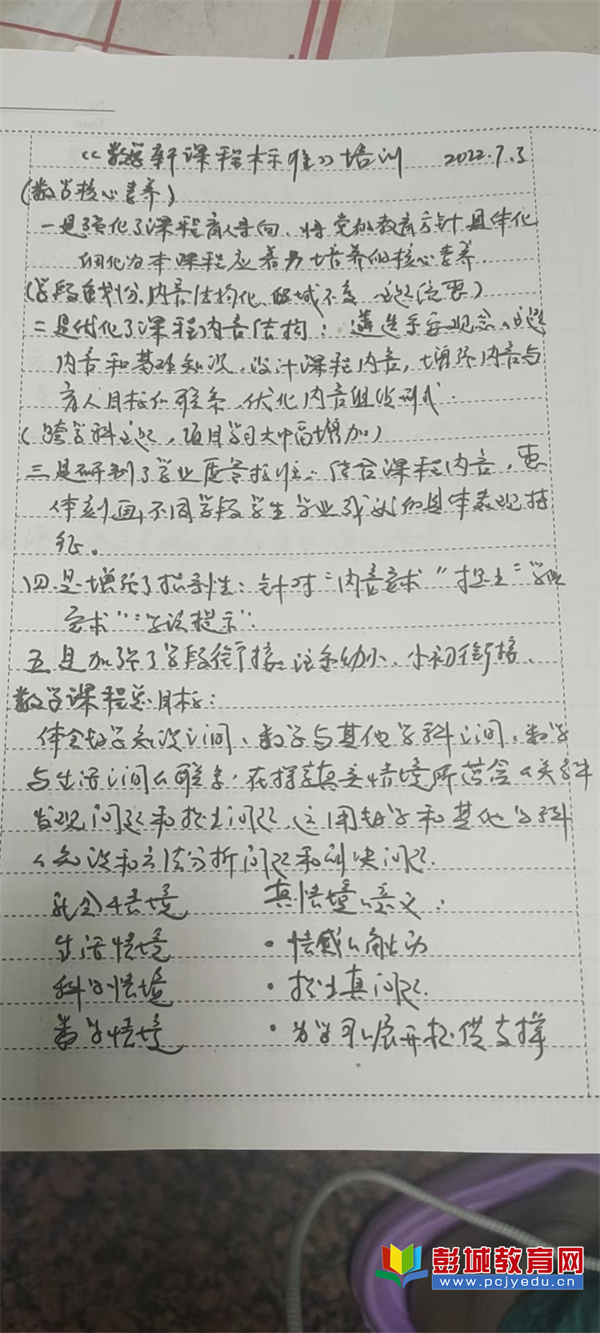 《数学新课程标准》培训 2022.7.3
(数学核心素养)
一是强化了课程育人导向、将党的教育方针具体化
细化为本课程应着力培养的核心素养.
(学段重划分,内容结构化,领域不变)
二是优化了课程内容结构:遴选重要观念、主题
内容和基础知识,设计课程内容,增强内容与
育人目标的联系,优化内容组织形式.
(跨学科主题,项目学习大幅增加)
三是研制了学业质量标准:结合课程内容,整
体刻画不同学段学生学业成就的具体表现特
征。
四是增强了指导性:针对"内容要求"提出"学业
要求""学段提示".
五是加强了学段衔接.注重幼小、小初衔接、
数学课程总目标:
体会数学知识之间、数学与其他学科之间,数学
与生活之间的联系.在探索真实情境所蕴含的关系中
发现问题和提出问题,运用数学和其他学科
的知识和方法分析问题和解决问题.
社会情境 真情境意义:
生活情境 ·情感的触动
科学情境 ·提出真问题.
数学情境 ·为学习展开提供支撑
彭城教育网
www.pcjyedu.cn